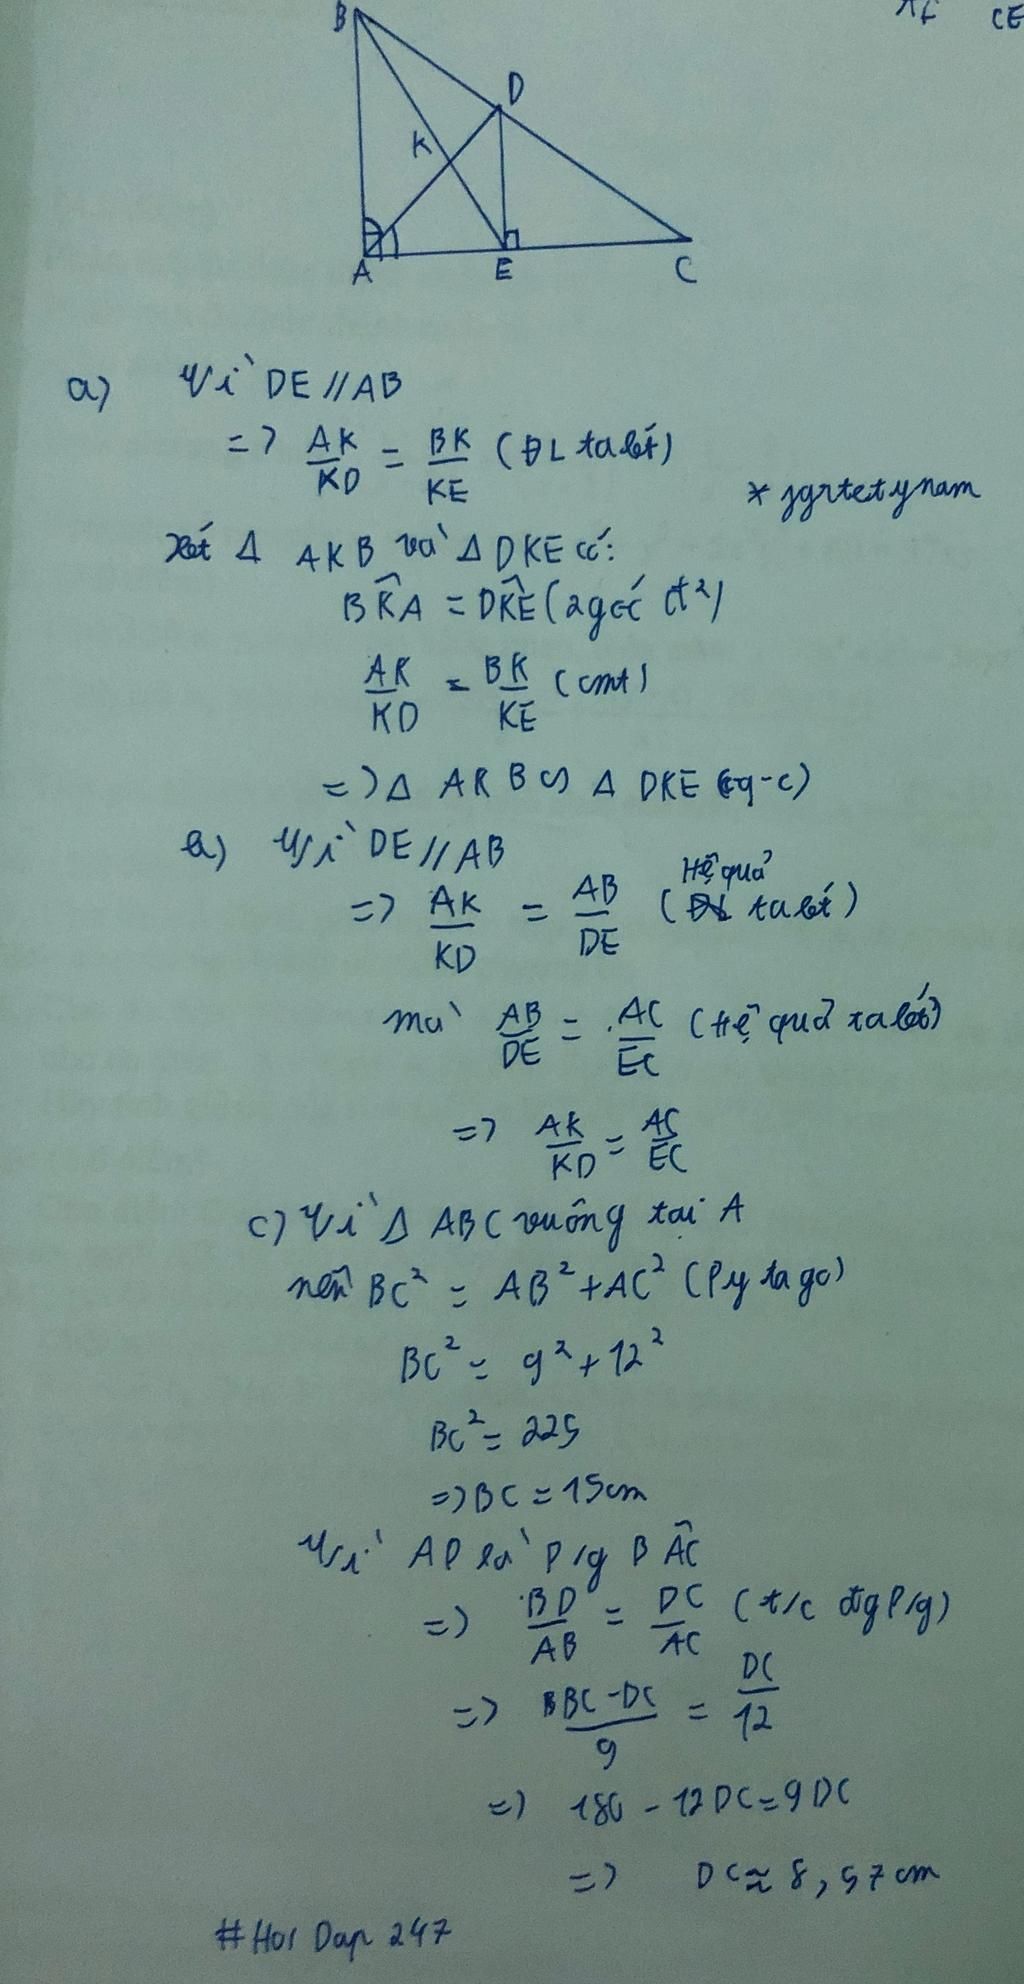 CE
B
D
K
A E C
a) Vì DE // AB
=> AK/KD = BK/KE (ĐL talét)
* jgrtetynam
Xét Δ AKB và Δ DKE có:
BK̂A = DK̂E (2 góc đ²)
AK/KD = BK/KE (cmt)
=> Δ AKB ∽ Δ DKE (c-g-c)
b) Vì DE // AB
=> AK/KD = AB/DE (Hệ quả talét)
mà AB/DE = AC/EC (Hệ quả talét)
=> AK/KD = AC/EC
c) Vì Δ ABC vuông tại A
nên BC² = AB² + AC² (Pytago)
BC² = 9² + 12²
BC² = 225
=> BC = 15cm
Vì AD là p/g BÂC
=> BD/AB = DC/AC (t/c đg p/g)
=> BC - DC/9 = DC/12
=> 180 - 12DC = 9DC
=> DC ≈ 8,57cm
#Hoi Dap 247